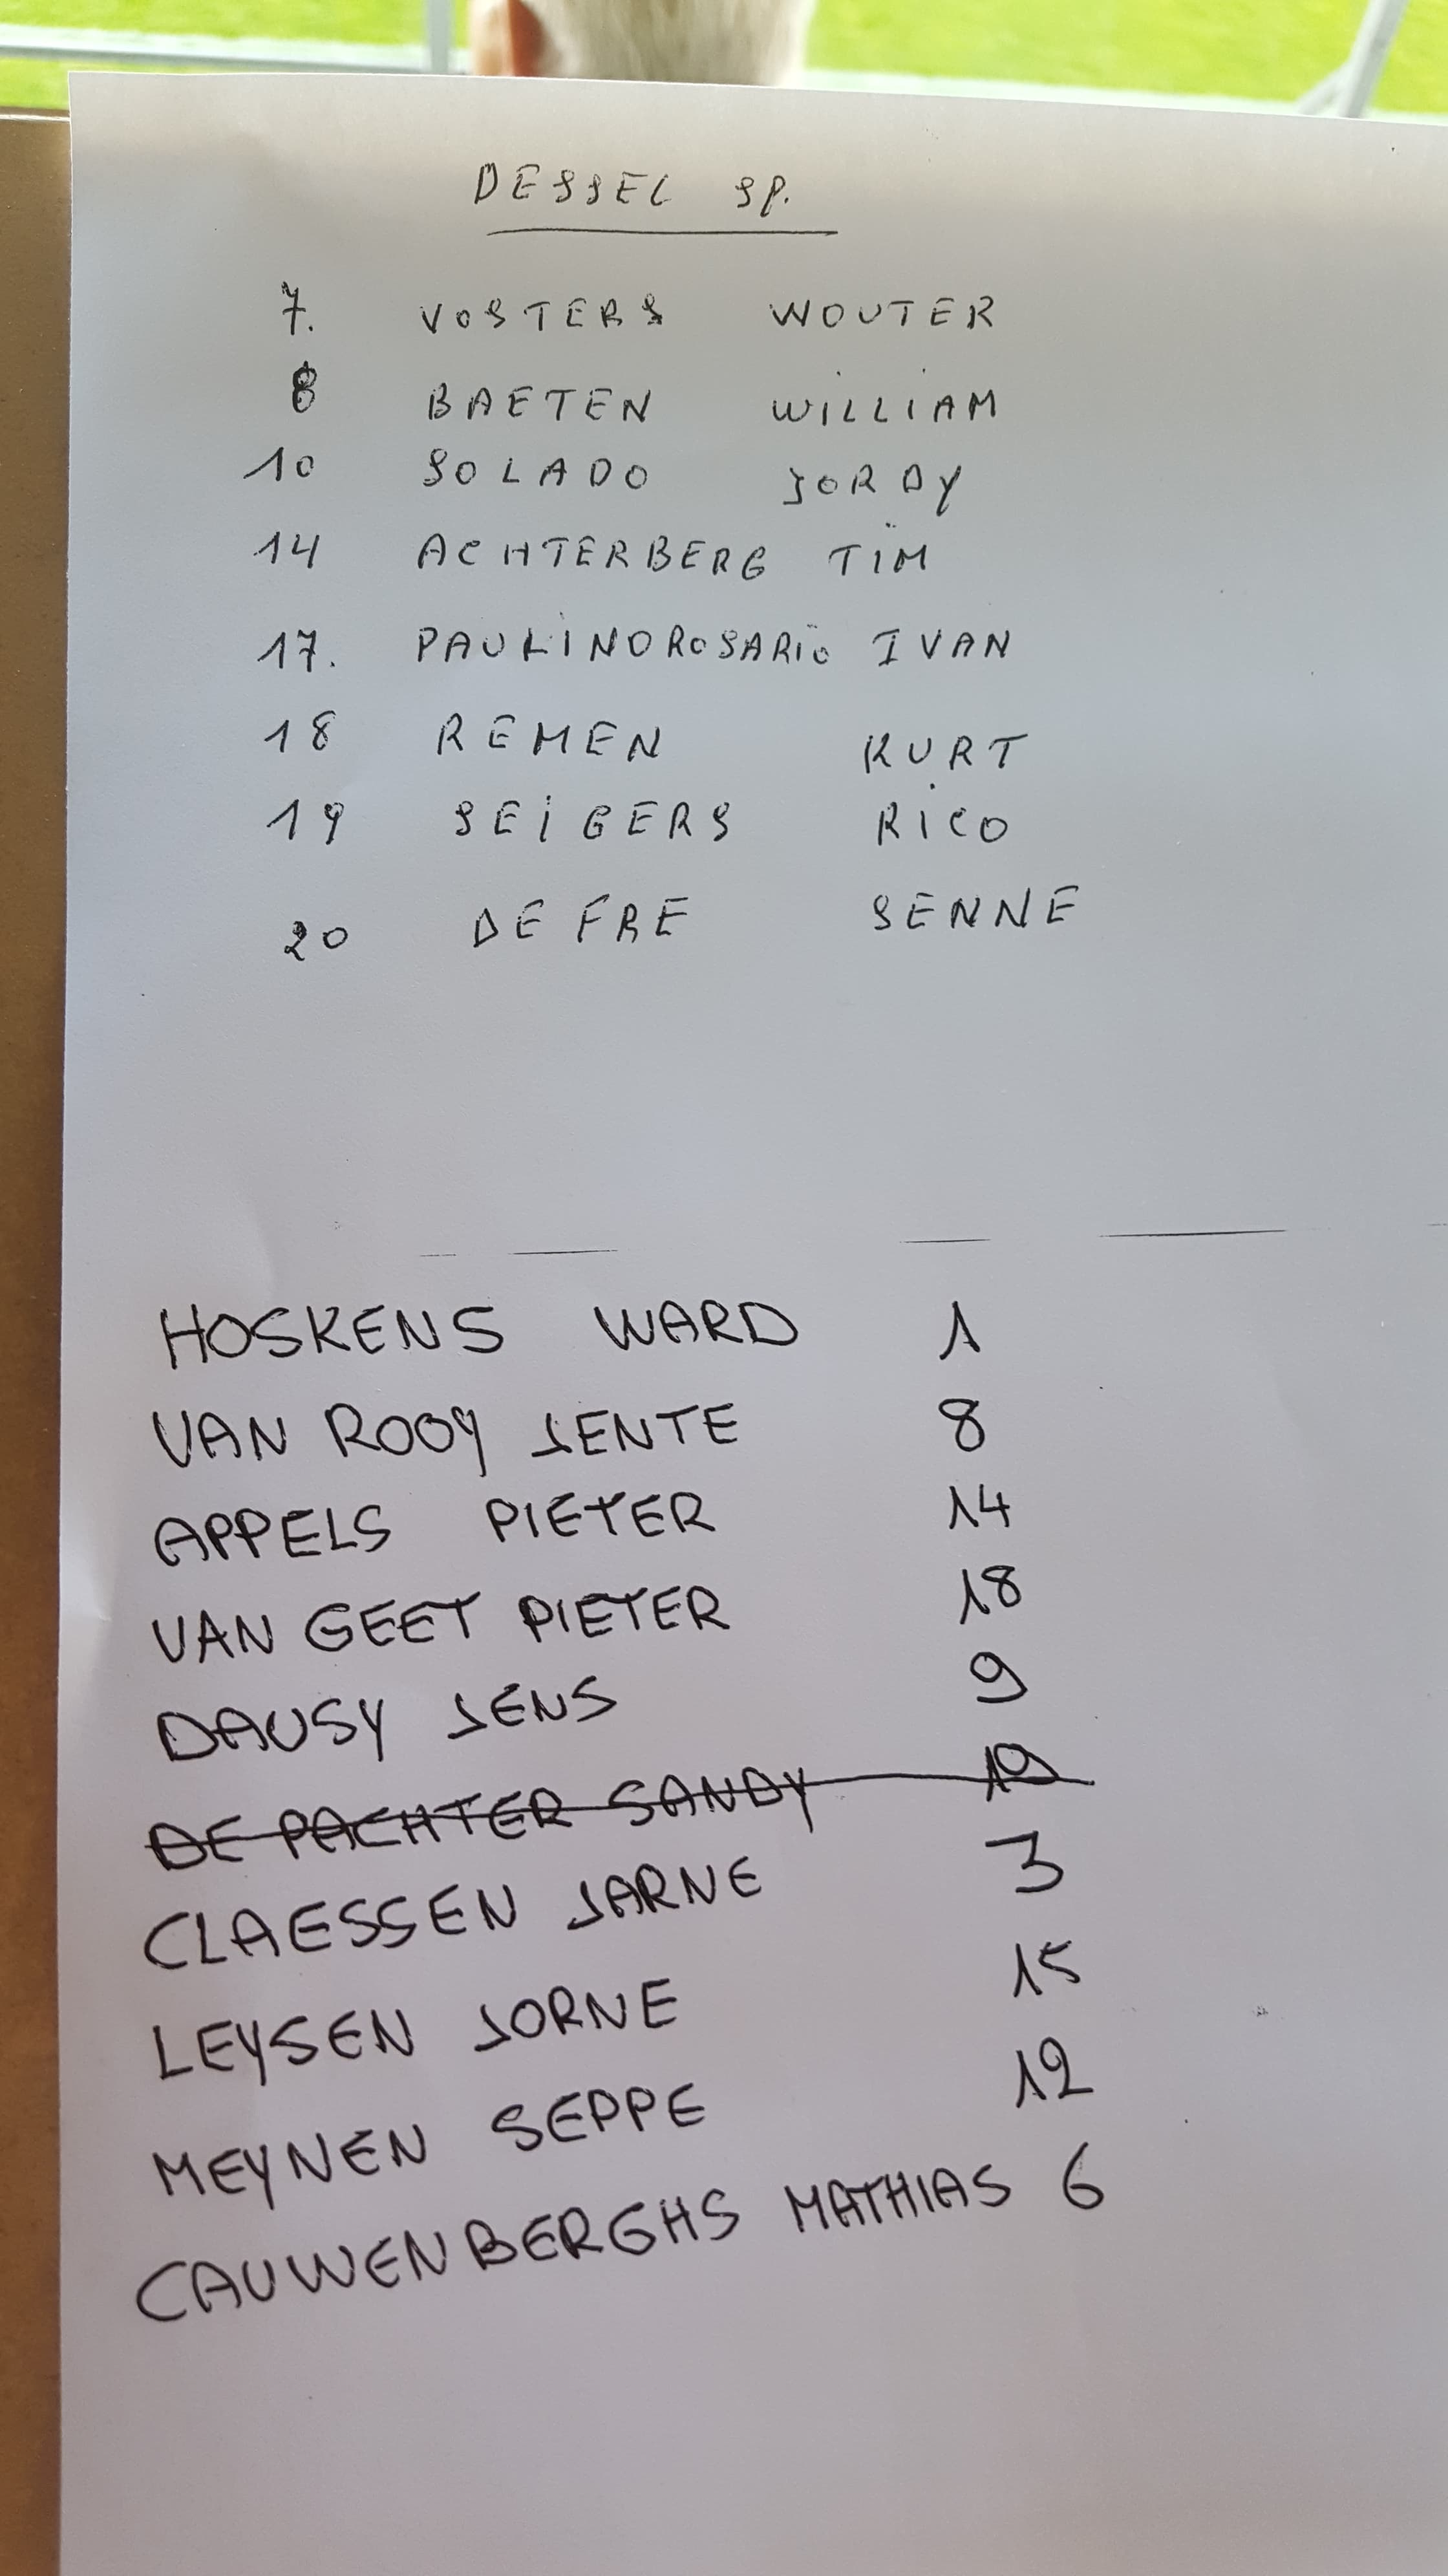 DESSEL SP.
7. VOSTERS WOUTER
8 BAETEN WILLIAM
10 SOLADO JORDY
14 ACHTERBERG TIM
17. PAULINOROSARIO IVAN
18 REMEN KURT
19 SEIGERS RICO
20 DE FRE SENNE
HOSKENS WARD 1
VAN ROOY JENTE 8
APPELS PIETER 14
VAN GEET PIETER 18
DAUSY JENS 9
DE PACHTER SANDY 10
CLAESSEN JARNE 3
LEYSEN JORNE 15
MEYNEN SEPPE 12
CAUWENBERGHS MATHIAS 6